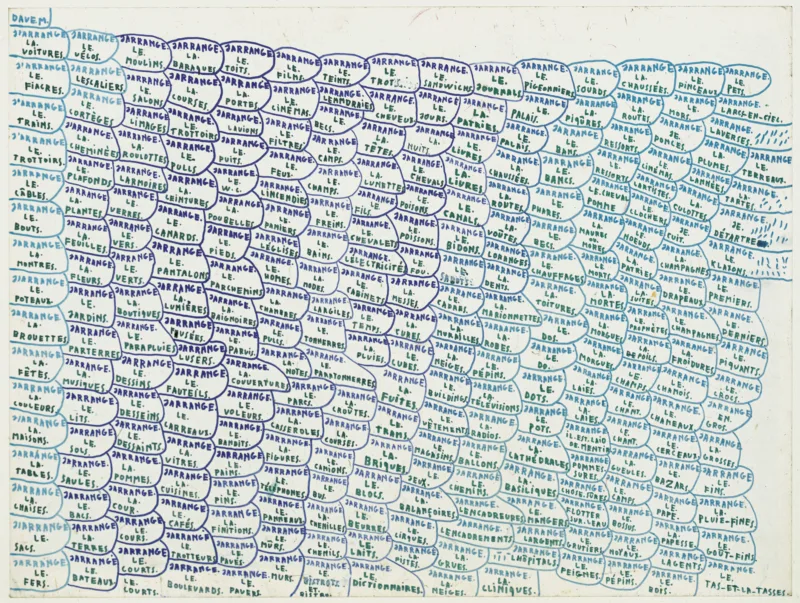 DAVE.M.
J'ARRANGE. LA. VOITURES.
J'ARRANGE LE. FIACRES.
J'ARRANGE LE. TRAINS.
J'ARRANGE LE. TROTTOIRS.
JARRANGE LE. CÂBLES.
JARRANGE LE. BOUTS.
JARRANGE LA. MONTRES.
JARRANGE LE. POTEAUX.
JARRANGE LA. BROUETTES
JARRANGE LA. FÊTES.
JARRANGE LA. COULEURS
JARRANGE LA. MAISONS.
JARRANGE LA. TABLES.
JARRANGE. LA. CHAISES.
JARRANGE. LE. SACS.
JARRANGE. LE. FERS.
JARRANGE LE. VÉLOS.
JARRANGE LESCALIERS
JARRANGE LE. CORTÈGES
JARRANGE LA. CHEMINÉES
JARRANGE LE. PLAFONDS
JARRANGE LA. PLANTES
JARRANGE LA. FEUILLES.
JARRANGE LA. FLEURS.
JARRANGE LE. JARDINS.
JARRANGE LE. PARTERRES
JARRANGE LA. MUSIQUES.
JARRANGE LE. LITS.
JARRANGE LE. SOLS.
JARRANGE LE. SAULES.
JARRANGE. LE. BACS.
JARRANGE LA. TERRES
JARRANGE. LE. BATEAUX.
JARRANGE LE. MOULINS.
JARRANGE LE. SALONS
JARRANGE LIMAGES
JARRANGE LA. ROULOTTES
JARRANGE LARMOIRES
JARRANGE LE. VERRES.
JARRANGE LE. VERS.
JARRANGE LE. VERTS.
JARRANGE LE. BOUTIQUES
JARRANGE. LE. PARAPLUIES
JARRANGE LE. DESSINS
JARRANGE LE. DESSEINS
JARRANGE LE. DESSAINTS
JARRANGE LA. POMMES.
JARRANGE LE. COUR.
JARRANGE LE. COURS.
JARRANGE LE. COURTS.
JARRANGE. LE. LOURTS.
JARRANGE. LA. BARAQUES
JARRANGE. LA. COURSES.
JARRANGE LE. TROTTOIRS
JARRANGE LE. PULLS.
JARRANGE LA. CEINTURES
JARRANGE. LE. CANARDS.
JARRANGE. LE. PANTALONS
JARRANGE LA. MANIÈRES
JARRANGE LE. MUSÉES.
JARRANGE LUSERS.
JARRANGE LE. FAUTEILS.
JARRANGE LE. CARREAUX.
JARRANGE LA. VITRES
JARRANGE LA. CUISINES.
JARRANGE LE. CAFÉS
JARRANGE LE. TRAITEURS
JARRANGE. LE. BOULEVARDS.
JARRANGE. LE. TOITS.
JARRANGE LE. PORTES
JARRANGE LAVIONS
JARRANGE LE. PUITS.
JARRANGE LE. W-C.
JARRANGE LA. POUBELLES
JARRANGE LE. PIEDS.
JARRANGE LE. PARCHEMINS
JARRANGE LA. BAIGNOIRES
JARRANGE LE. PARVIS.
JARRANGE LA. COUVERTURE.
JARRANGE LE. VOLEURS.
JARRANGE LE. BANDITS
JARRANGE LE. PAINS.
JARRANGE LE. PINS.
JARRANGE LA. FINITIONS
JARRANGE LE. PAVÉS.
JARRANGE. LE. PAVERS.
JARRANGE LE. FILMS.
JARRANGE LE. CINÉMAS.
JARRANGE LE. FILTRES.
JARRANGE LE. FEUX.
JARRANGE LINCENDIES
JARRANGE LE. PANIERS
JARRANGE LÉGLISES
JARRANGE LE. HOMES.
JARRANGE LA. CHAMBRES
JARRANGE LE. PULLS.
JARRANGE LA. NOTES
JARRANGE LE. PARCS.
JARRANGE LA. CASSEROLES
JARRANGE LE. FIGURES.
JARRANGE LE. TÉLÉPHONES
JARRANGE LE. PANNEAUX
JARRANGE LE. MÛRS.
JARRANGE. LE. MURS.
JARRANGE LE. TEINTS.
JARRANGE LENNDRAIRES
JARRANGE LE. BECS.
JARRANGE LE. CAMPS.
JARRANGE LE. CHAMPS
JARRANGE LE. FILS.
JARRANGE LE. FREINS.
JARRANGE LE. BAINS.
JARRANGE LA. MODES
JARRANGE LARGILES
JARRANGE LE. TONNERRE
JARRANGE LE. PARATONNERRES
JARRANGE LA. CROÛTES
JARRANGE LE. COFFRES
JARRANGE LE. CAMIONS.
JARRANGE LE. BUS.
JARRANGE LE. CHENILLES
JARRANGE LE. CHENILS.
JARRANGE LE. BISTROTZ ET.
JARRANGE LE. TROTS.
JARRANGE LE. CHEVEUX
JARRANGE LE. TÊTES.
JARRANGE LA. LUNETTES
JARRANGE LE. CHEVALETS
JARRANGE LÉLECTRICITÉS
JARRANGE LE. CABINETS
JARRANGE LE. TEMPS.
JARRANGE LA. PLUIES.
JARRANGE LA. FUITES.
JARRANGE LE. TRAMS.
JARRANGE LA. BRIQUES.
JARRANGE LE. BLOCS.
JARRANGE LE. BEURRES
JARRANGE LE. LAITS.
JARRANGE LE. DICTIONNAIRES.
JARRANGE LE. SANDWICHS
JARRANGE LE. JOURS.
JARRANGE LA. NUITS
JARRANGE LE. CHEVALS
JARRANGE LE. POISONS.
JARRANGE LE. POISSONS.
JARRANGE LE. FOU.
JARRANGE LE. MESSES.
JARRANGE LE. CUBES.
JARRANGE LE. CUBES.
JARRANGE LE. MAGASINS
JARRANGE LE. JEUX.
JARRANGE LA. BALANÇOIRES
JARRANGE LE. CIRQUES.
JARRANGE LE. PISTES.
JARRANGE. LA. NEIGES.
JARRANGE LE. JOURNALS
JARRANGE LA. LATRIES
JARRANGE LE. LIVRES.
JARRANGE LE. LIVRES.
JARRANGE LE. CANALS
JARRANGE LE. BIDONS
JARRANGE LE.
JARRANGE LE. CABLES
JARRANGE LA. MURAILLES
JARRANGE LA. NEIGES
JARRANGE LE. BUILDINGS
JARRANGE LE. VÊTEMENTS
JARRANGE LE. BALLONS
JARRANGE LE. CHEMINS.
JARRANGE LENCADREMENTS
JARRANGE LA. GRUES
JARRANGE LA. CLINIQUES.
JARRANGE LE. PIGEONNIERS
JARRANGE LE. PALAIS.
JARRANGE LE. PALAIS
JARRANGE LA. CHAUSSÉES
JARRANGE LA. ROUTES
JARRANGE LA. VOÛTES
JARRANGE LORANGES
JARRANGE LE. DENTS.
JARRANGE LE. MARIONNETTES
JARRANGE LE. DOS.
JARRANGE LE. PÉPINS
JARRANGE LE. TÉLÉVISIONS
JARRANGE LE. RADIOS.
JARRANGE LA. CATHÉDRALES
JARRANGE LA. BASILIQUES
JARRANGE LE. MANGERS
JARRANGE LARGENTS
JARRANGE LHÔPITALS
JARRANGE LE. SOURDS
JARRANGE LA. PIQÛRES
JARRANGE LE. BANS.
JARRANGE LE. BANCS.
JARRANGE LE. MARRES.
JARRANGE LE. BECS.
JARRANGE LE. CHAUFFAGES
JARRANGE LA. TOITURES.
JARRANGE LE. DOS.
JARRANGE LE. DO.
JARRANGE LE. DOTS.
JARRANGE LE. POTS.
JARRANGE LA. CHAUSSÉES.
JARRANGE LA. ROUTES
JARRANGE LE. RESSORTS.
JARRANGE LE. RESSERTS.
JARRANGE LE. SANG. POMME
JARRANGE LE. MAUDIT. OU. MORT.
JARRANGE LE. MORT.
JARRANGE LA. MORTES
JARRANGE LA. MORGUES
JARRANGE LA. MORGUES.
JARRANGE LA. LAIES.
JARRANGE LA. LAIES
JARRANGE. IL.EST.LAID DE.MENTIR
JARRANGE POMMES. SURES.
JARRANGE LE. PINCEAUX
JARRANGE LE. MORS.
JARRANGE LE. PONCES
JARRANGE LE. CINÉMAS
JARRANGE LARTISTE
JARRANGE LE. CLOCHERS
JARRANGE LE. NOEUDS.
JARRANGE LA. PATRIES
JARRANGE LA. SUITE.
JARRANGE LE. PROPHÈTES
JARRANGE DEPOILS.
JARRANGE LE. CHAMPS
JARRANGE LE. CHANT.
JARRANGE LE. CHANT.
JARRANGE LE. GUEULES
JARRANGE LE. CAMPS
JARRANGE LE. BOSSUS
JARRANGE LE. NOYAUX.
JARRANGE. LE. PÉPINS.
JARRANGE LE. PETS.
JARRANGE. LARCS.EN.CIEL.
JARRANGE LAVERSES.
JARRANGE LA. PLUMES.
JARRANGE LA. ANNÉES
JARRANGE LA. CULOTTES
JARRANGE JE. FUIT.
JARRANGE LA. CHAMPAGNES
JARRANGE LE. DRAPEAUX.
JARRANGE LE. CHAMPAGNES
JARRANGE LA. FROIDURES
JARRANGE LE. CHAMOIS.
JARRANGE LE. CHANEAUX
JARRANGE LE. CERCEAUX
JARRANGE LE. BAZARS.
JARRANGE LE. PAPE.
JARRANGE LA. PAPESSE.
JARRANGE LAGENTS
JARRANGE. LE. BOIS.
JARRANGE. LE. TERREAUX.
JARRANGE LA. TARTES.
JARRANGE. JE. DÉTARTRE
JARRANGE LE. KLAXONS
JARRANGE LE. PREMIERS.
JARRANGE LE. DERNIERS.
JARRANGE LE. PIQUANTS
JARRANGE LE. CROCS.
JARRANGE. EN. GROS.
JARRANGE LA. GROSSES.
JARRANGE LE. FINS.
JARRANGE LA. PLUIE-FINES
JARRANGE LE. GOÛT-FINS.
JARRANGE. LE. TAS-ET-LA-TASSES.